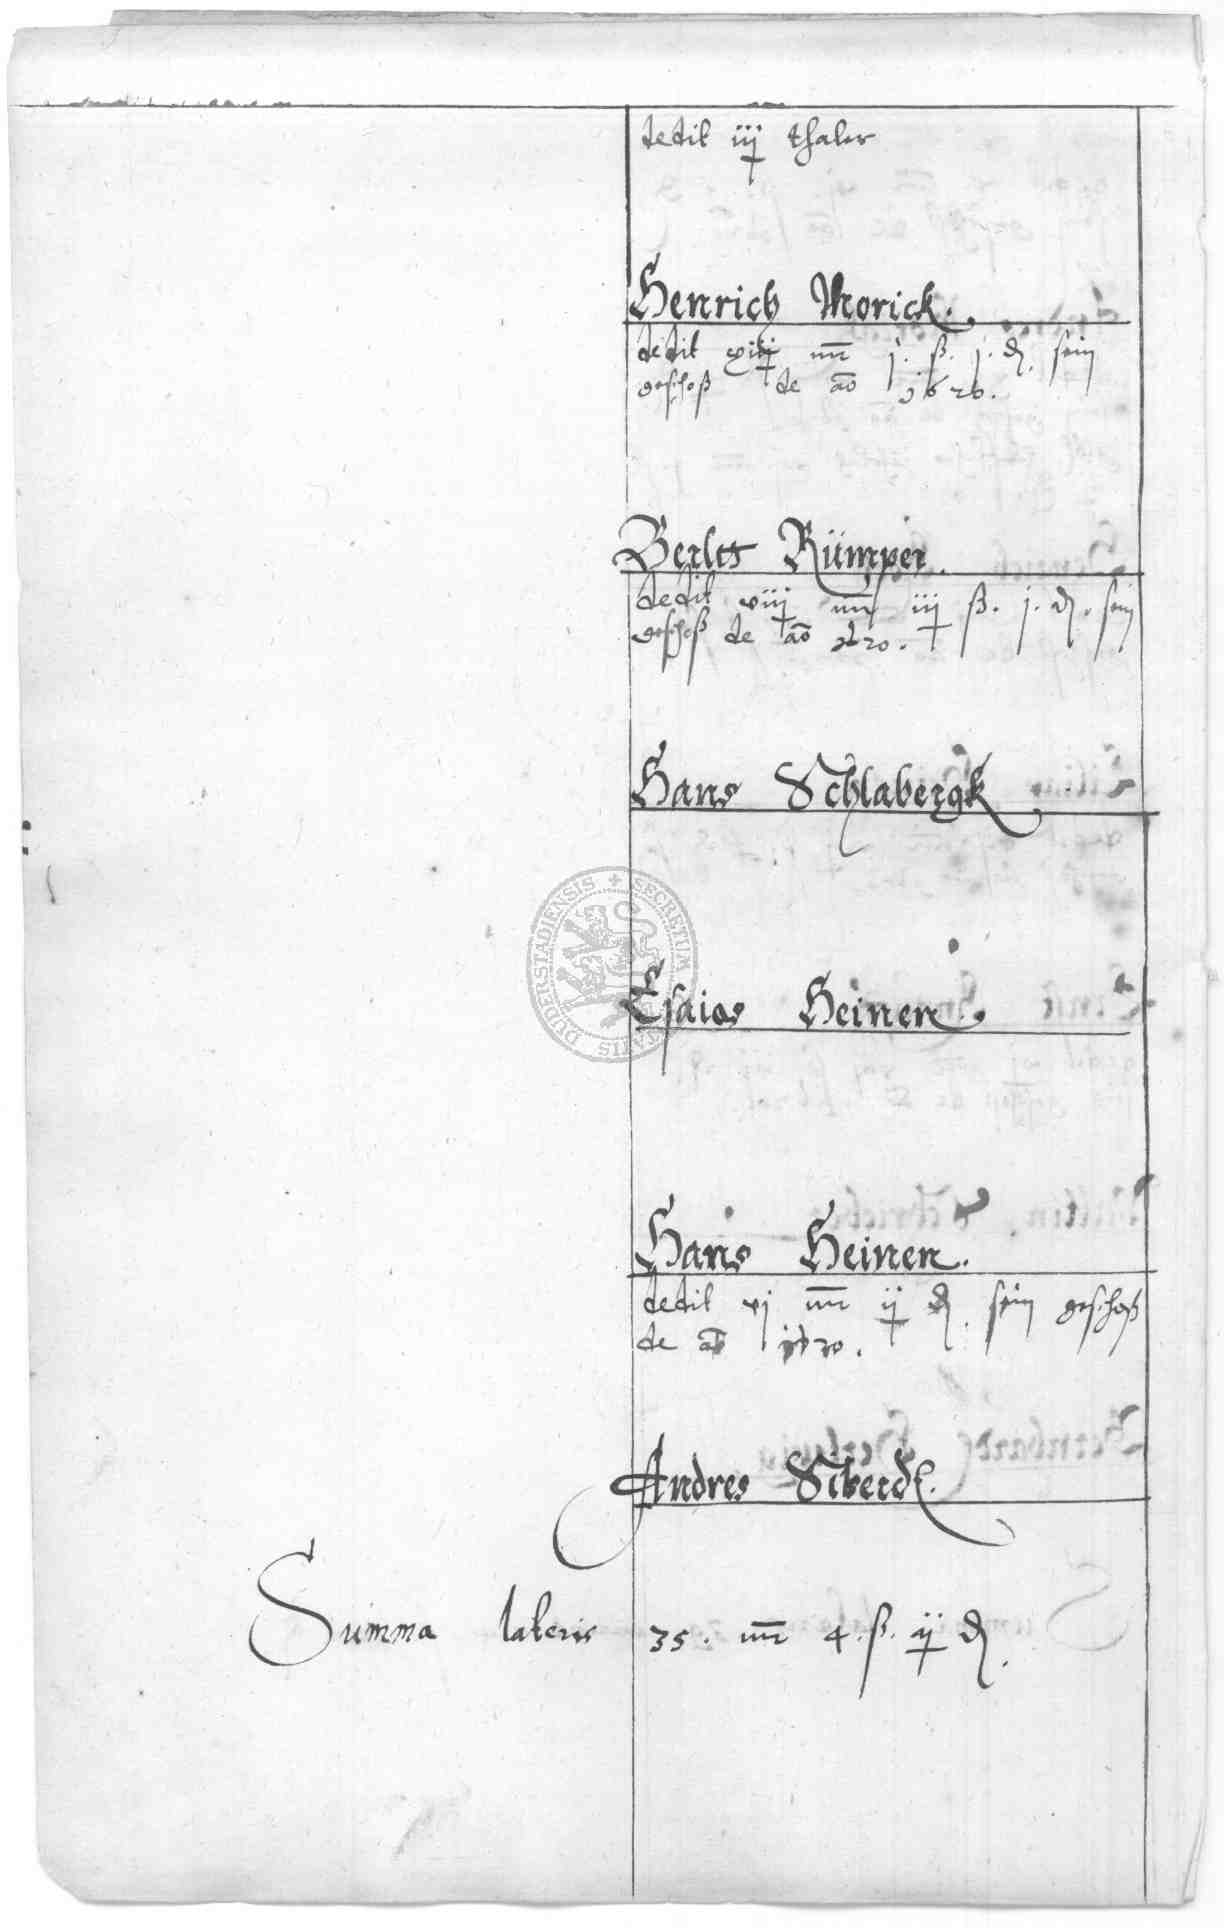 dedit iij thaler
Henrich Morick.
dedit xiiij mr j. ß. j. d. sein
geschoß de ao 1620.
Berltt Rümper.
dedit viij mr iij ß. j. d. sein
geschoß de ao 1620.
Hans Schlabergk
Esaias Heinen.
Hans Heinen.
dedit xj mr ij d. sein geschoß
de ao 1620.
Andres Siverdt.
Summa lateris 35. mr 4. ß. ij d.
SECRETUM DUDERSTADIENSIS CIVITATIS